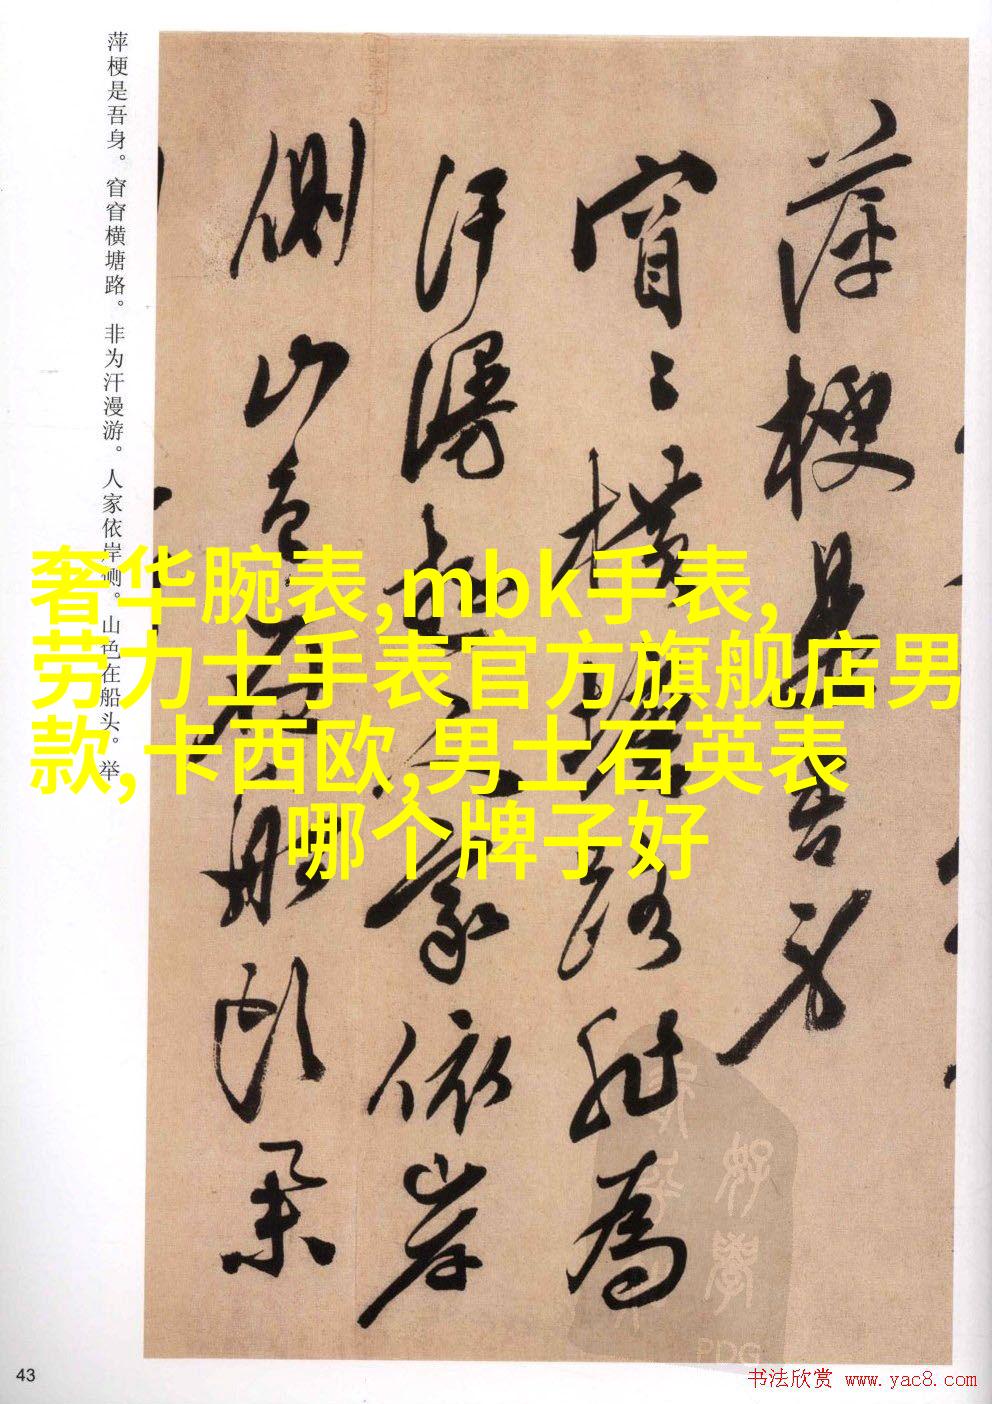 萍梗是吾身。窅窅横塘路。非为汗漫游。人家依岸侧。山色在船头。举
萍梗是吾身
窅〻横塘路非为
汗漫遊人家依岸
侧山色在船头举
奢华腕表,mbk手表,
劳力士手表官方旗舰店男
款,卡西欧,男士石英表
哪个牌子好
PDG
43
书法欣赏 www.yac8.com